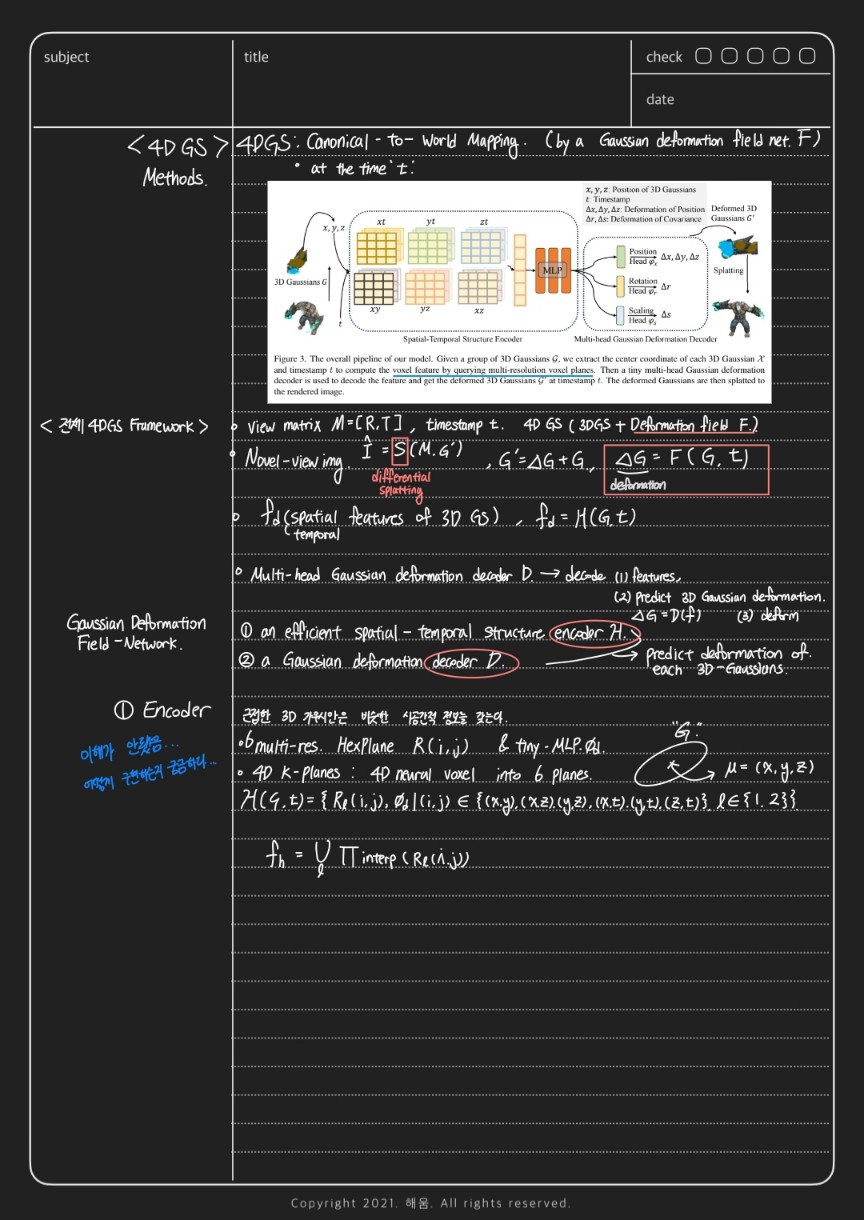 subject
title
check
date
<4D GS>
Methods.
4DGS: Canonical-to-World Mapping. (by a Gaussian deformation field net. F)
• at the time 't'.
x, y, z: Position of 3D Gaussians
t: Timestamp
Δx, Δy, Δz: Deformation of Position
Δr, Δs: Deformation of Covariance
Deformed 3D
Gaussians G'
x, y, z
xt
yt
zt
Position
Head φx
Δx, Δy, Δz
Splatting
MLP
3D Gaussians G
Rotation
Head φr
Δr
Scaling
Head φs
Δs
t
xy
yz
xz
Spatial-Temporal Structure Encoder
Multi-head Gaussian Deformation Decoder
Figure 3. The overall pipeline of our model. Given a group of 3D Gaussians G, we extract the center coordinate of each 3D Gaussian X
and timestamp t to compute the voxel feature by querying multi-resolution voxel planes. Then a tiny multi-head Gaussian deformation
decoder is used to decode the feature and get the deformed 3D Gaussians G' at timestamp t. The deformed Gaussians are then splatted to
the rendered image.
<전체 4DGS Framework>
◦ View matrix M=[R,T], timestamp t. 4D GS (3DGS + Deformation field F.)
◦ Novel-view img. Î = S(M,G'), G'=ΔG+G, ΔG = F(G, t)
differential
splatting
deformation
◦ fd(spatial features of 3D GS), fd = H(G,t)
temporal
◦ Multi-head Gaussian deformation decoder D. → decode (1) features,
(2) predict 3D Gaussian deformation.
ΔG=D(f) (3) deform
Gaussian Deformation
Field-Network.
① an efficient spatial-temporal structure encoder H.
② a Gaussian deformation decoder D.
→ predict deformation of
each 3D-Gaussians.
① Encoder
이해가 안됐음...
어떻게 구현하는지 궁금하다...
근접한 3D 가우시안은 비슷한 시공간적 정보를 갖는다.
◦ 6 multi-res. HexPlane R(i,j) & tiny-MLP. φd.
"G"
μ = (x,y,z)
◦ 4D K-Planes : 4D neural voxel into 6 planes.
H(G,t)={Rl(i,j), φd|(i,j) ∈ {(x,y),(x,z),(y,z),(x,t),(y,t),(z,t)}, l∈{1,2}}
fh = ⋃l ∏ interp(Rl(i,j))
Copyright 2021. 해움. All rights reserved.